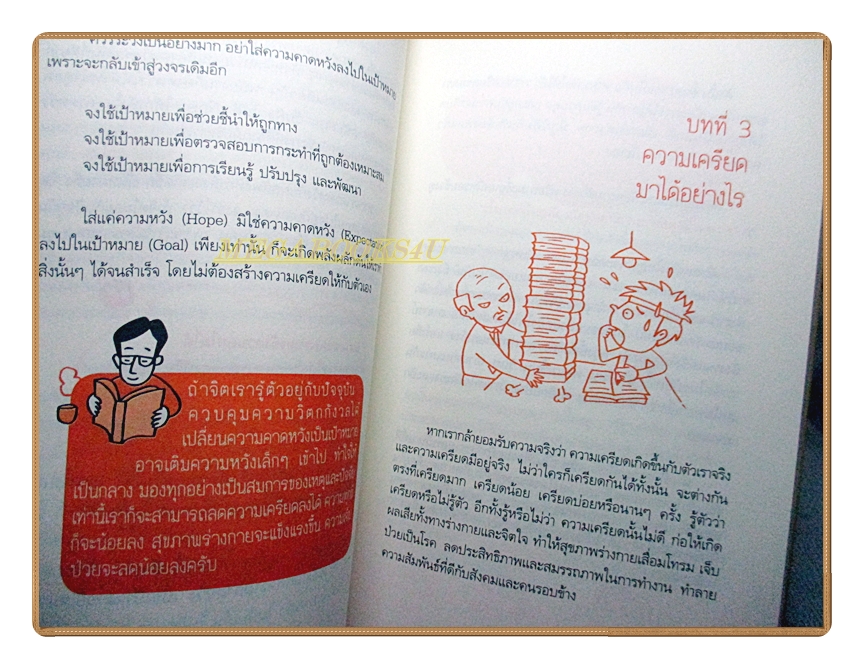 ควรระวังเป็นอย่างมาก อย่าใส่ความคาดหวังลงไปในเป้าหมาย
เพราะจะกลับเข้าสู่วงจรเดิมอีก
จงใช้เป้าหมายเพื่อช่วยชี้นำให้ถูกทาง
จงใช้เป้าหมายเพื่อตรวจสอบการกระทำที่ถูกต้องเหมาะสม
จงใช้เป้าหมายเพื่อการเรียนรู้ ปรับปรุง และพัฒนา
ใส่แค่ความหวัง (Hope) มิใช่ความคาดหวัง
ลงไปในเป้าหมาย (Goal) เพียงเท่านั้น ก็จะเกิดพลังผลักดันให้เราทำ
สิ่งนั้นๆ ได้จนสำเร็จ โดยไม่ต้องสร้างความเครียดให้กับตัวเอง
MEGA BOOKS4U
ถ้าจิตเรารู้ตัวอยู่กับปัจจุบัน
ควบคุมความวิตกกังวลได้
เปลี่ยนความคาดหวังเป็นเป้าหมาย
อาจเติมความหวังเล็กๆ เข้าไป ทำใจให้
เป็นกลาง มองทุกอย่างเป็นสมการของเหตุและปัจจัย
เท่านี้เราก็จะสามารถลดความเครียดลงได้ ความทุกข์
ก็จะน้อยลง สุขภาพร่างกายจะแข็งแรงขึ้น
ป่วยจะลดน้อยลงครับ
บทที่ 3
ความเครียด
มาได้อย่างไร
หากเรากล้ายอมรับความจริงว่า ความเครียดเกิดขึ้นกับตัวเราจริง
และความเครียดมีอยู่จริง ไม่ว่าใครก็เครียดกันได้ทั้งนั้น จะต่างกัน
ตรงที่เครียดมาก เครียดน้อย เครียดบ่อยหรือนานๆ ครั้ง รู้ตัวว่า
เครียดหรือไม่รู้ตัว อีกทั้งรู้หรือไม่ว่า ความเครียดนั้นไม่ดี ก่อให้เกิด
ผลเสียทั้งทางร่างกายและจิตใจ ทำให้สุขภาพร่างกายเสื่อมโทรม เจ็บ
ป่วยเป็นโรค ลดประสิทธิภาพและสมรรถภาพในการทำงาน ทำลาย
ความสัมพันธ์ที่ดีกับสังคมและคนรอบข้าง